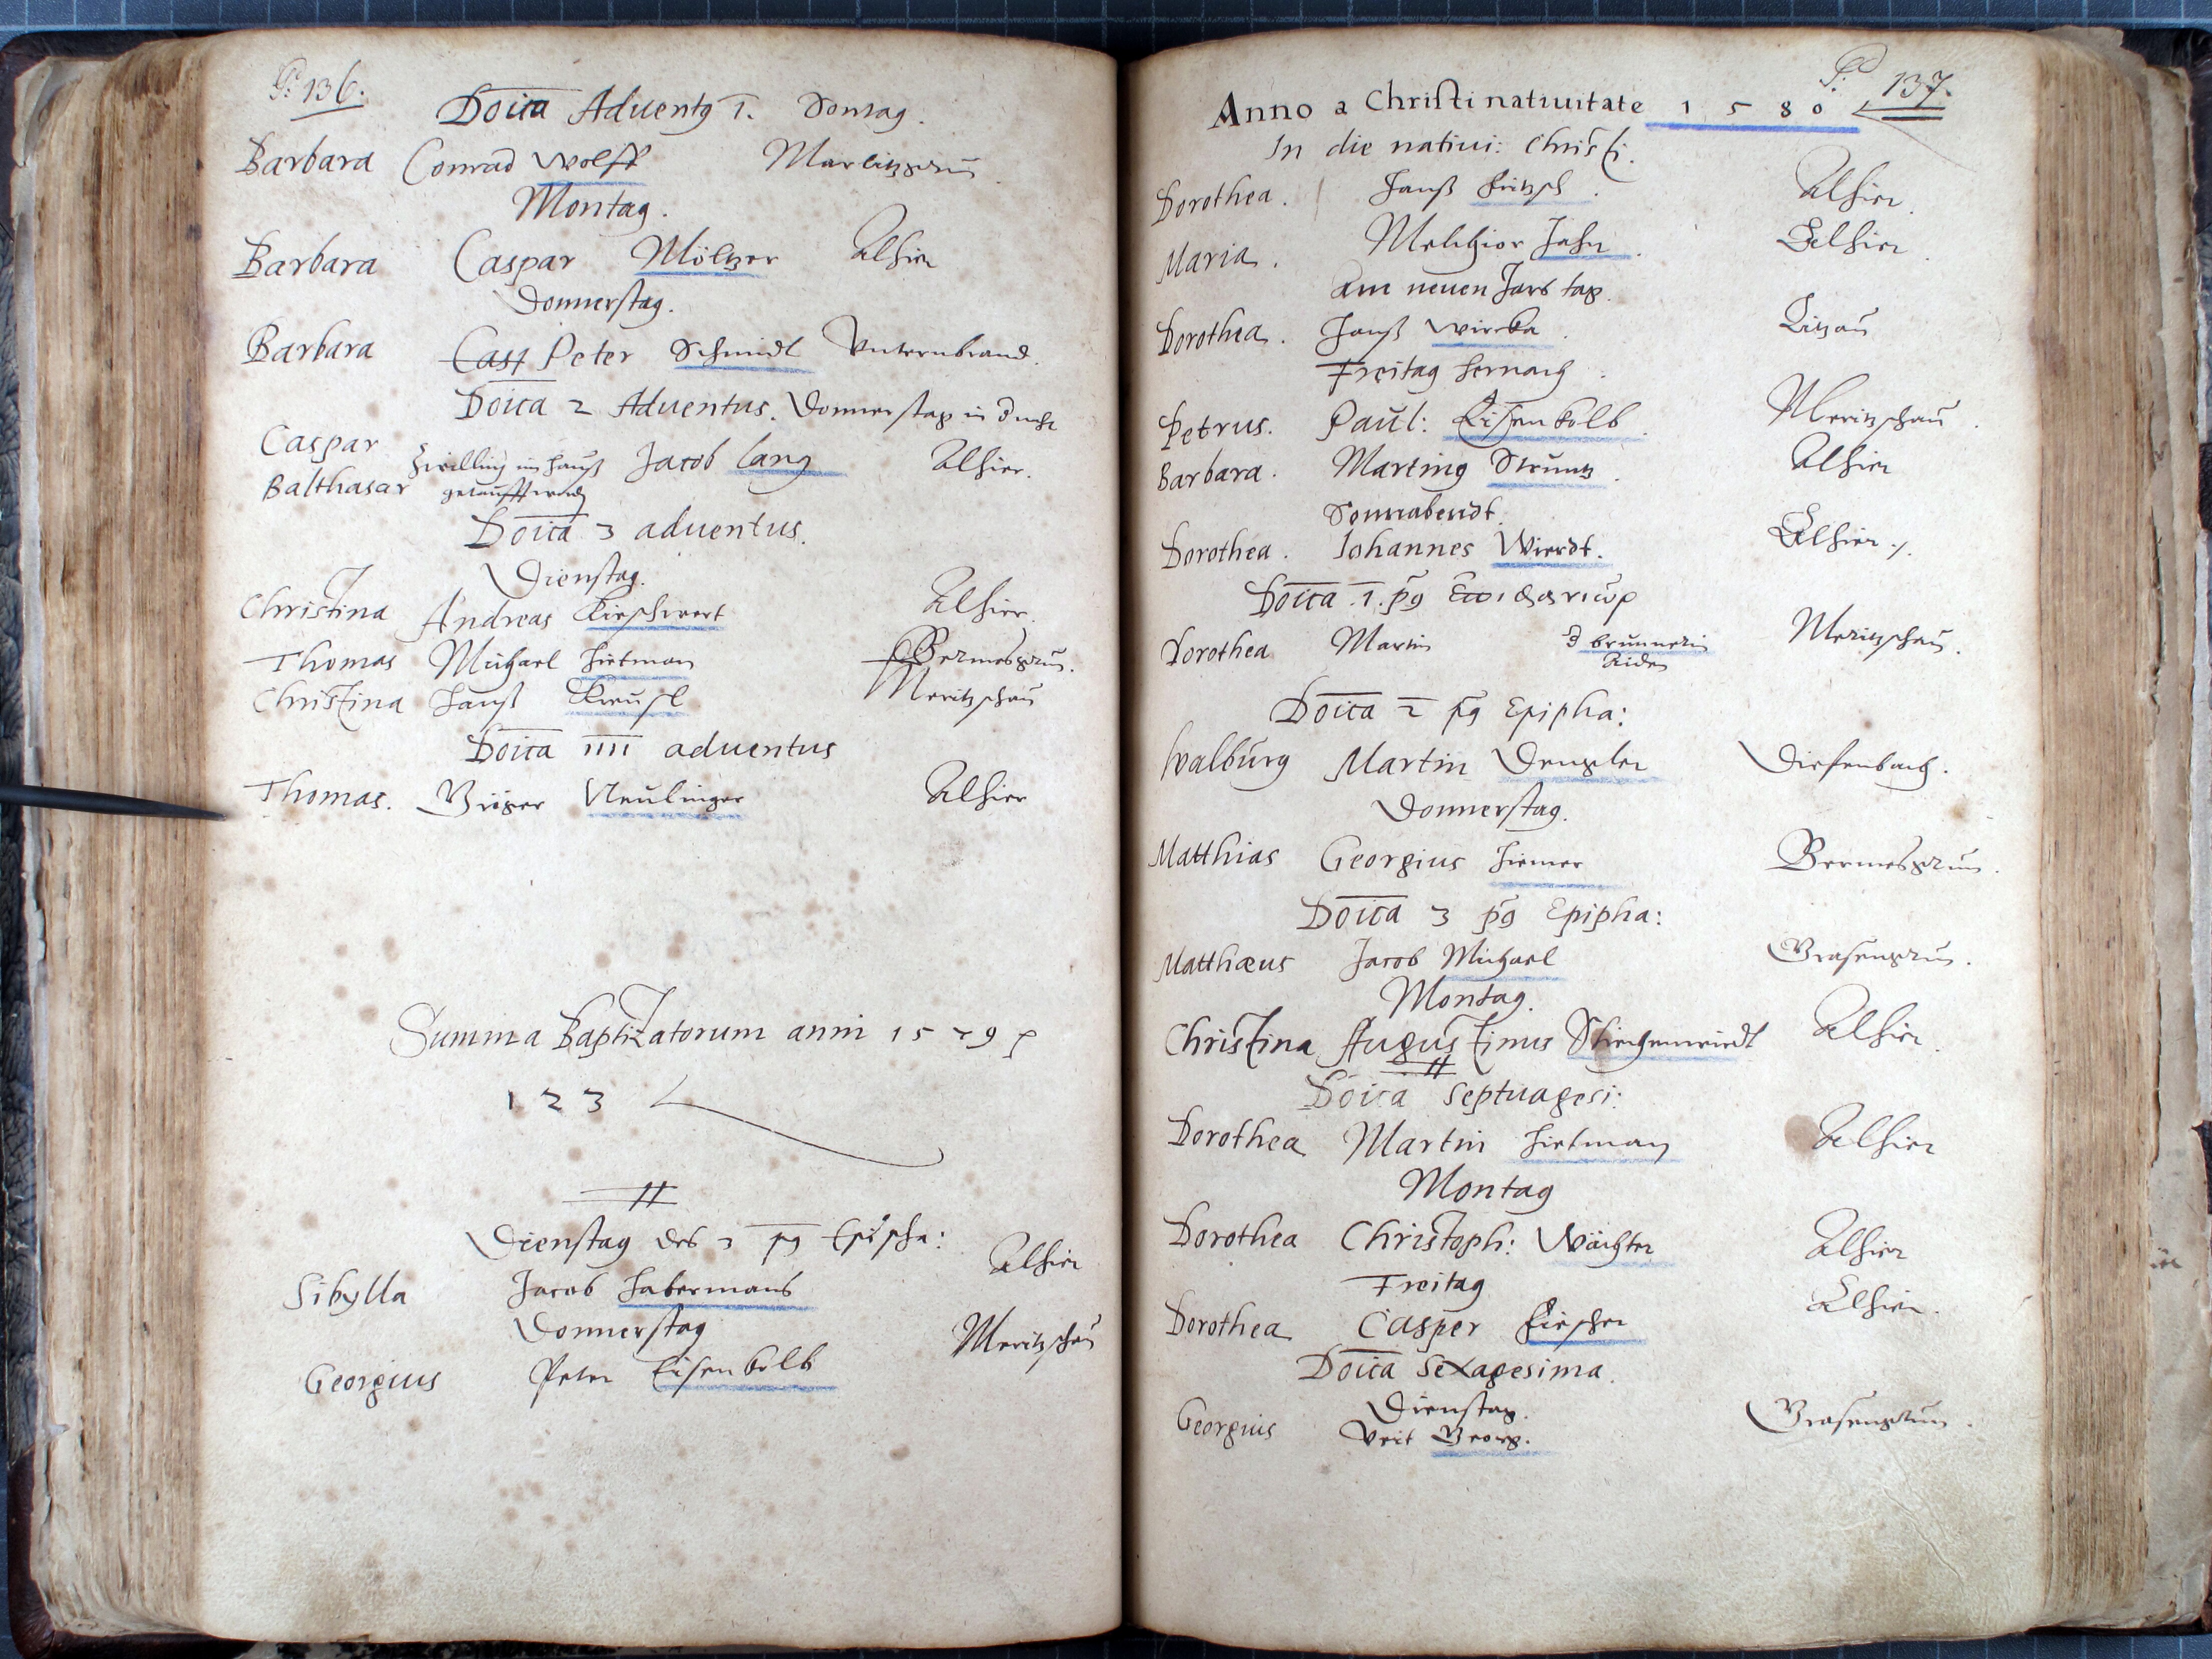 P. 136.
Doica Adventg 1. Sontag.
Barbara Conrad Wolff Marlitzgrun
Montag.
Barbara Caspar Möltzer Alhier
Donnerstag.
Barbara Casp Peter Schmidl Unternbrand.
Doica 2 Adventus. Donnerstag in
Caspar
Zwilling im Hauß Jacob Lang Alhier.
Balthasar getaufft
Doica 3 adventus.
Dienstag.
Christina Andreas Alhier.
Thomas Michael Hietman Bermesgrun.
Christina Hanß Meritzschau
Doica IIII aduentus
Thomas. Neulinger Alhier
Summa Baptizatorum anni 1579
123
Dienstag des 3 pg Epipha:
Sibylla Jacob Habermans Alhier
Donnerstag
Georgius Peter Eisenkolb Meritzschau
P. 137.
Anno a Christi natiuitate 1580
In die natiui: Christi.
Dorothea. Hanß Fritzsch. Alhier.
Maria. Melchior Jahn. Alhier.
Am neuen Jars tag.
Dorothea. Hanß Wirrka. Litzau
Freitag hernach.
Petrus. Paul: Eisenkolb. Meritzschau.
Barbara. Marting Struntz. Alhier
Sonnabendt.
Dorothea. Johannes Wierdt. Alhier.
Doica .1. pg
Dorothea Martin brunnerin Meritzschau.
Aiden
Doica 2 pg Epipha:
Walburg Martin Dengler Diefenbach.
Donnerstag.
Matthias Georgius Hiemer Bermesgrun.
Doica 3 pg Epipha:
Matthæus Jacob Michael Grasengrun.
Montag.
Christina Augustinus Alhier.
Doica Septuagesi:
Dorothea Martin Hietman Alhier
Montag
Dorothea Christoph: Wächter Alhier
Freitag
Dorothea Casper Fischer Alhier.
Doica Sexagesima.
Dienstag.
Georgius Veit Georg. Grasengrun.